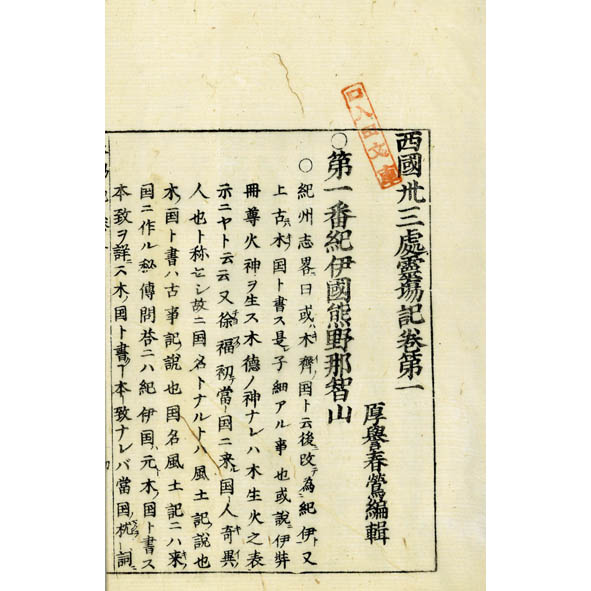 西國卅三處靈場記卷第一
厚譽春鶯編輯
○第一番紀伊國熊野那智山
○紀州志畧曰或ハ木齊ノ国ト云後改テ為紀伊ト又
上古木ノ国ト書ス是子細アル事也或説伊弉
冊尊火神ヲ生ス木德ノ神ナレハ木生火之表
示ニヤト云云又徐福初當国ニ来ル国人奇異
人也ト称セシ故ニ国名トナルトハ風土記ノ説也
木ノ国ト書ハ古事記ノ説也国名風土記ニハ来
国ニ作ル秘傳問荅ニハ紀伊国元木ノ国ト書ス
本致ヲ詳ニス木ノ国ト書ク本致ナレバ當国枕詞
文庫